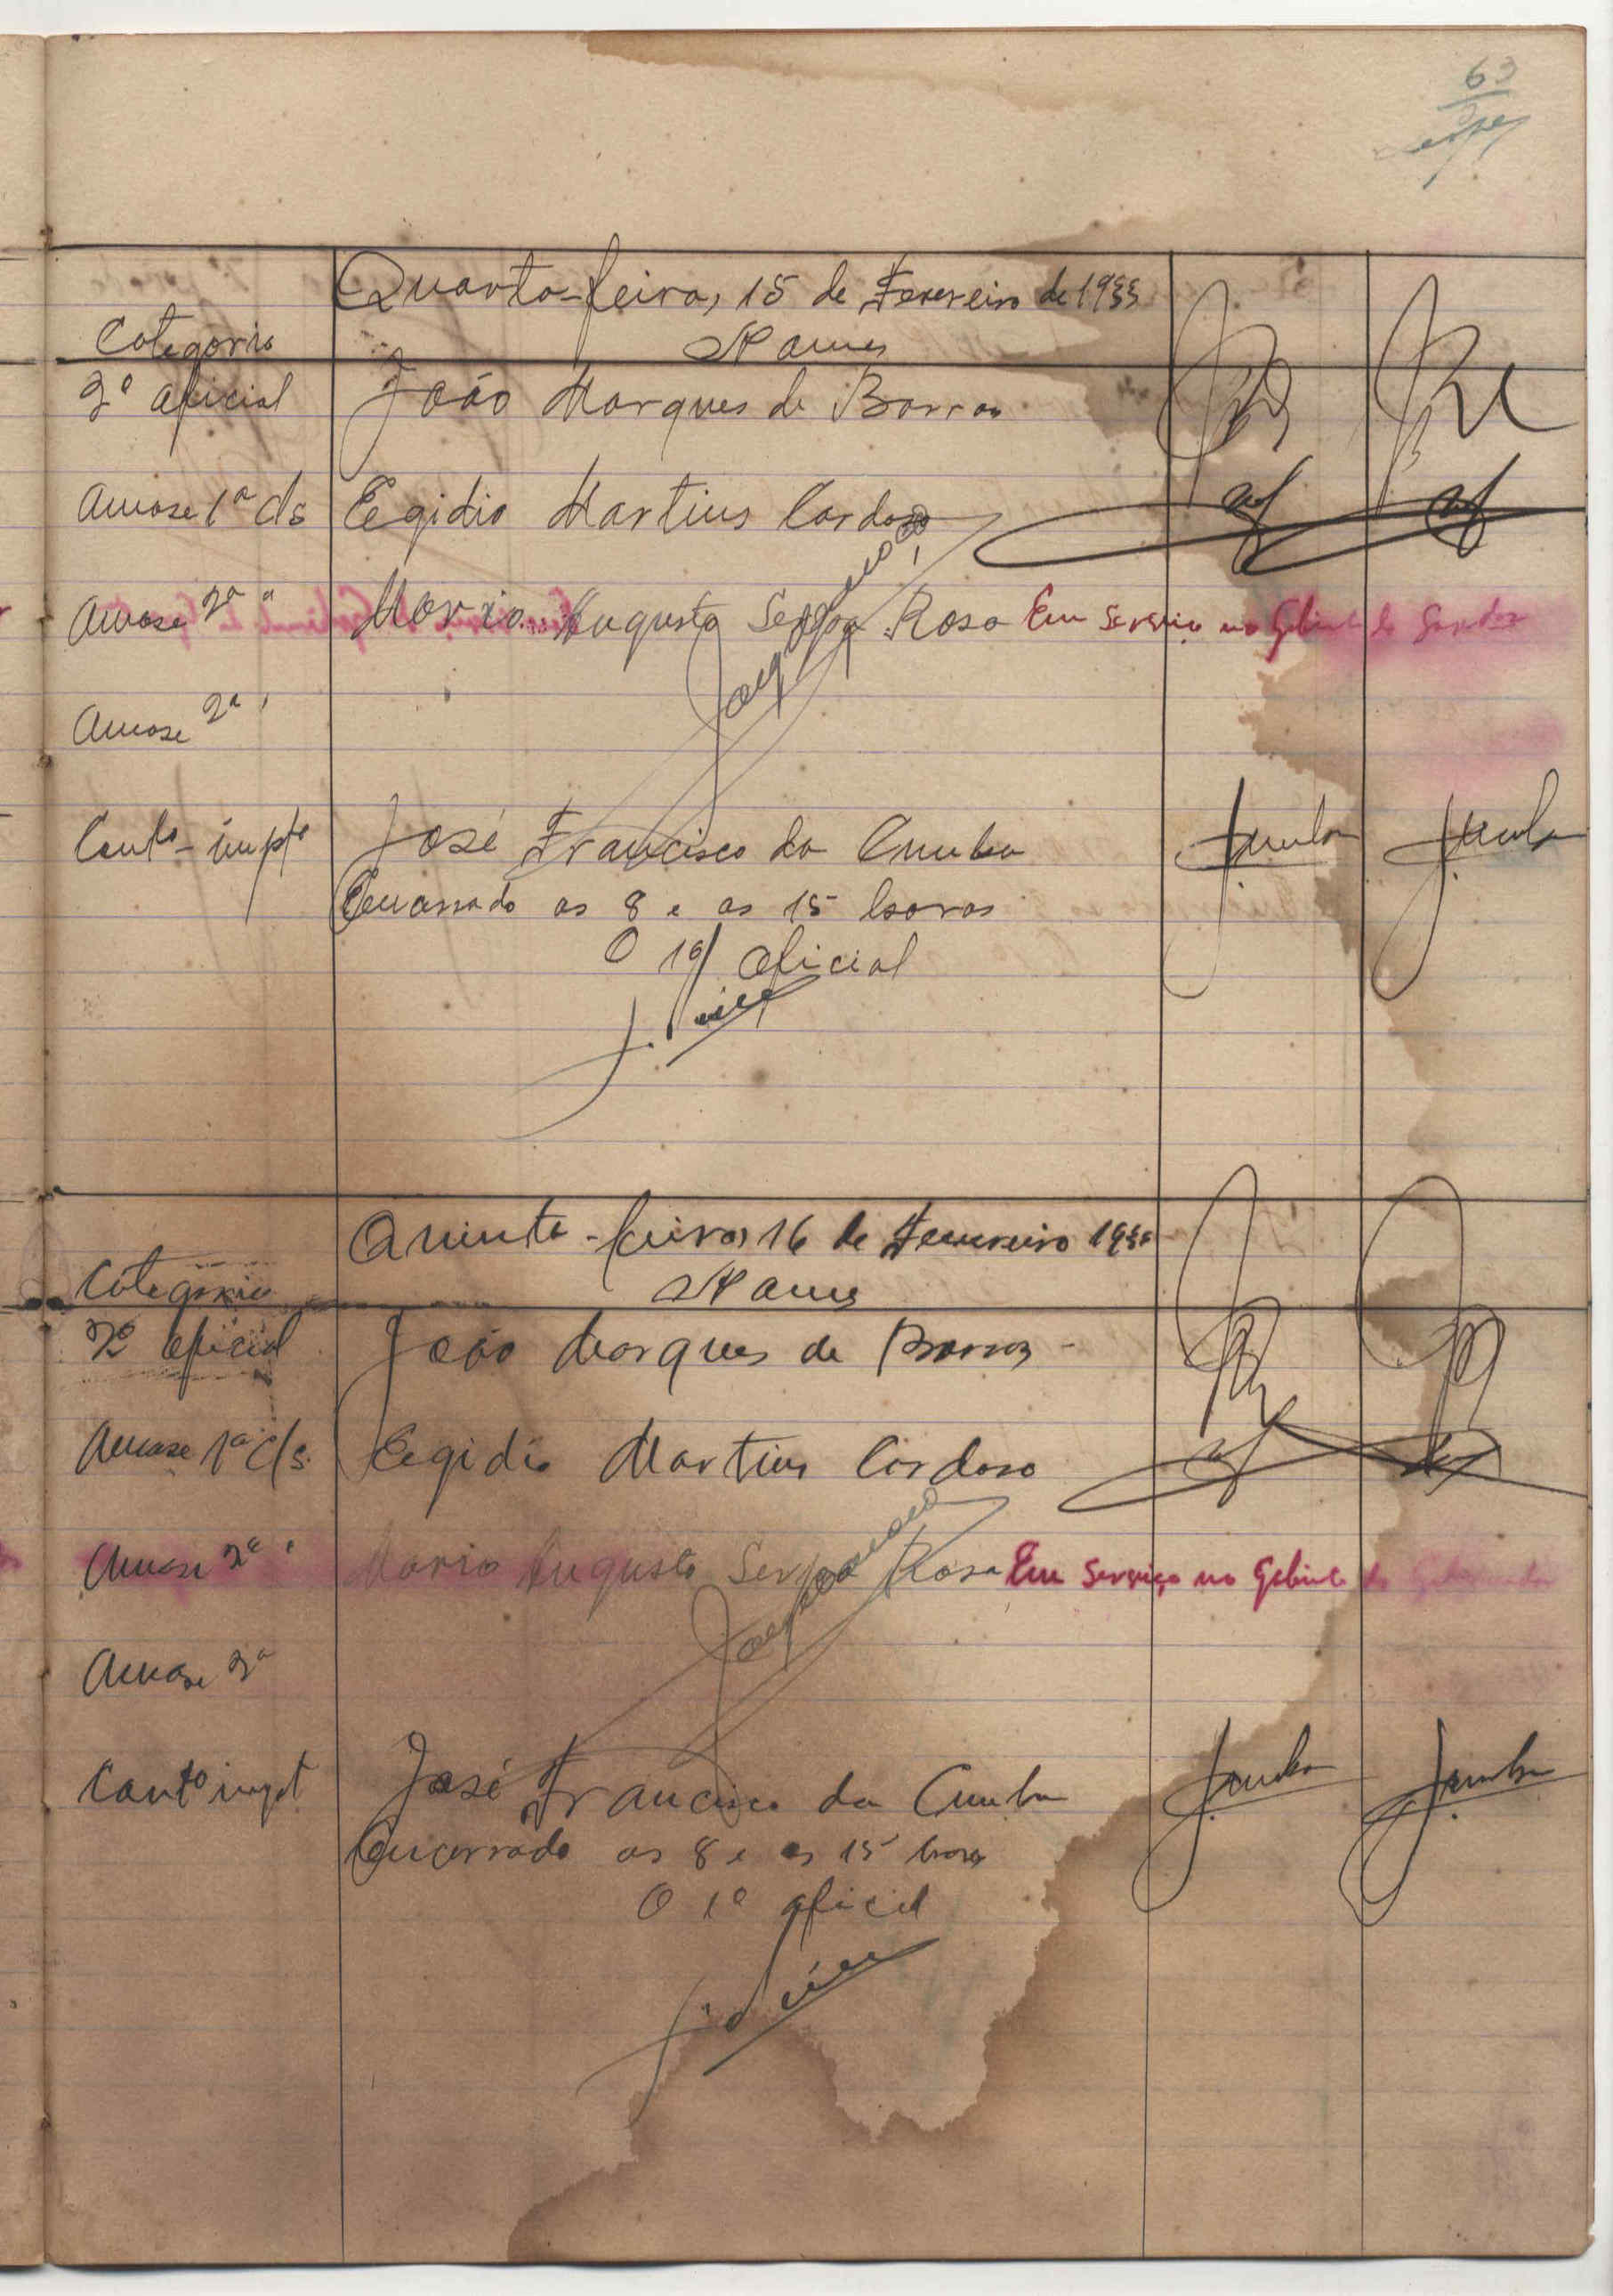 63
Quarta-feira, 15 de Fevereiro de 1933
Categoria Nomes
2º oficial João Marques de Barros
Amase 1ª cls Egidio Martins Cardoso
Amase 2ª " Maria Augusta Serpa Rosa Em serviço no Gabinete do
Amase 2ª '
José Francisco da Cunha
Encerrado as 8 e as 15 horas
O 1º oficial
Quinta-feira, 16 de Fevereiro
Categoria Nomes
2º oficial João Marques de Barros
Amase 1ª cls. Egidio Martins Cardoso
Amase 2ª ' Maria Augusta Serpa Rosa Em serviço no Gabinete do
Amase 2ª
José Francisco da Cunha
Encerrado as 8 e as 15 horas
O 1º oficial